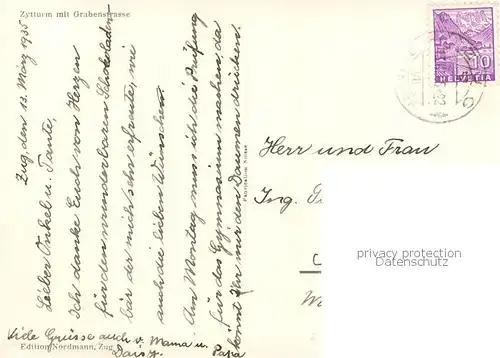 Zytturm mit Grabenstrasse
Zug, den 13. März 1935
Lieber Onkel u. Tante,
Ich danke Euch von Herzen
für den wunderbaren Schokoladen-
der mich sehr erfreute, wie
auch die lieben Wünsche.
Am Montag muss ich die Prüfung
für das Gymnasium machen, da
könnt Ihr mir den Daumen drücken.
Viele Grüsse auch v. Mama u.
Papa
Edition Nordmann, Zug
Fabrication Suisse
10
HELVETIA
Herr und Frau
Ing.
privacy protection
Datenschutz